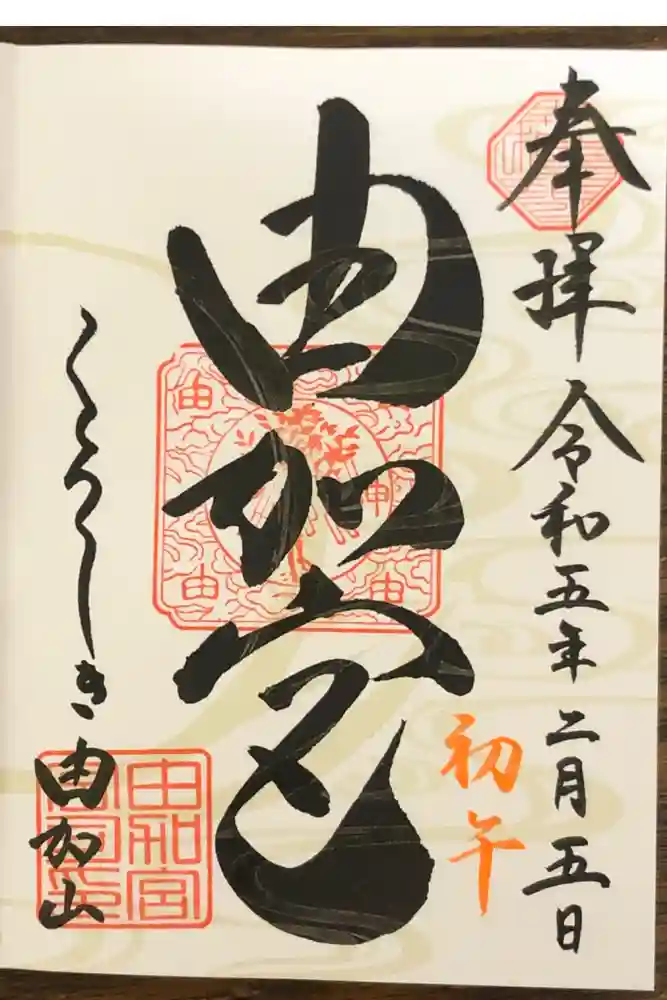 奉拝 令和五年二月五日
初午
由加宮
くらしき 由加山
由加宮
由
由
由